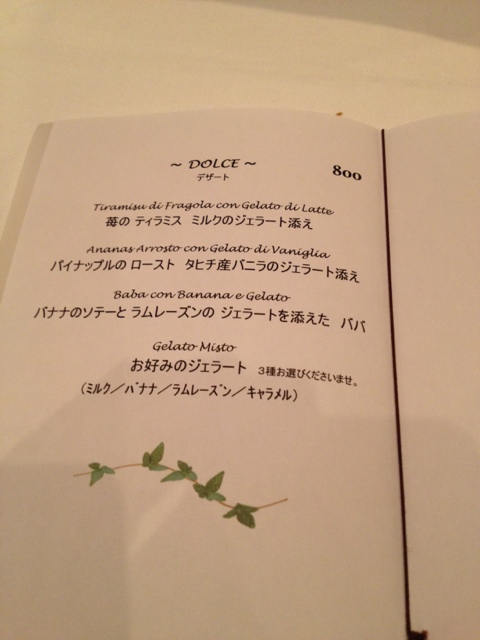 ~ DOLCE ~
800
デザート
Tiramisu di Fragola con Gelato di Latte
苺の ティラミス ミルクのジェラート添え
Ananas Arrosto con Gelato di Vaniglia
パイナップルの ロースト タヒチ産バニラのジェラート添え
Baba con Banana e Gelato
バナナのソテーと ラムレーズンの ジェラートを添えた ババ
Gelato Misto
お好みのジェラート 3種お選びくださいませ。
(ミルク/バナナ/ラムレーズン/キャラメル)